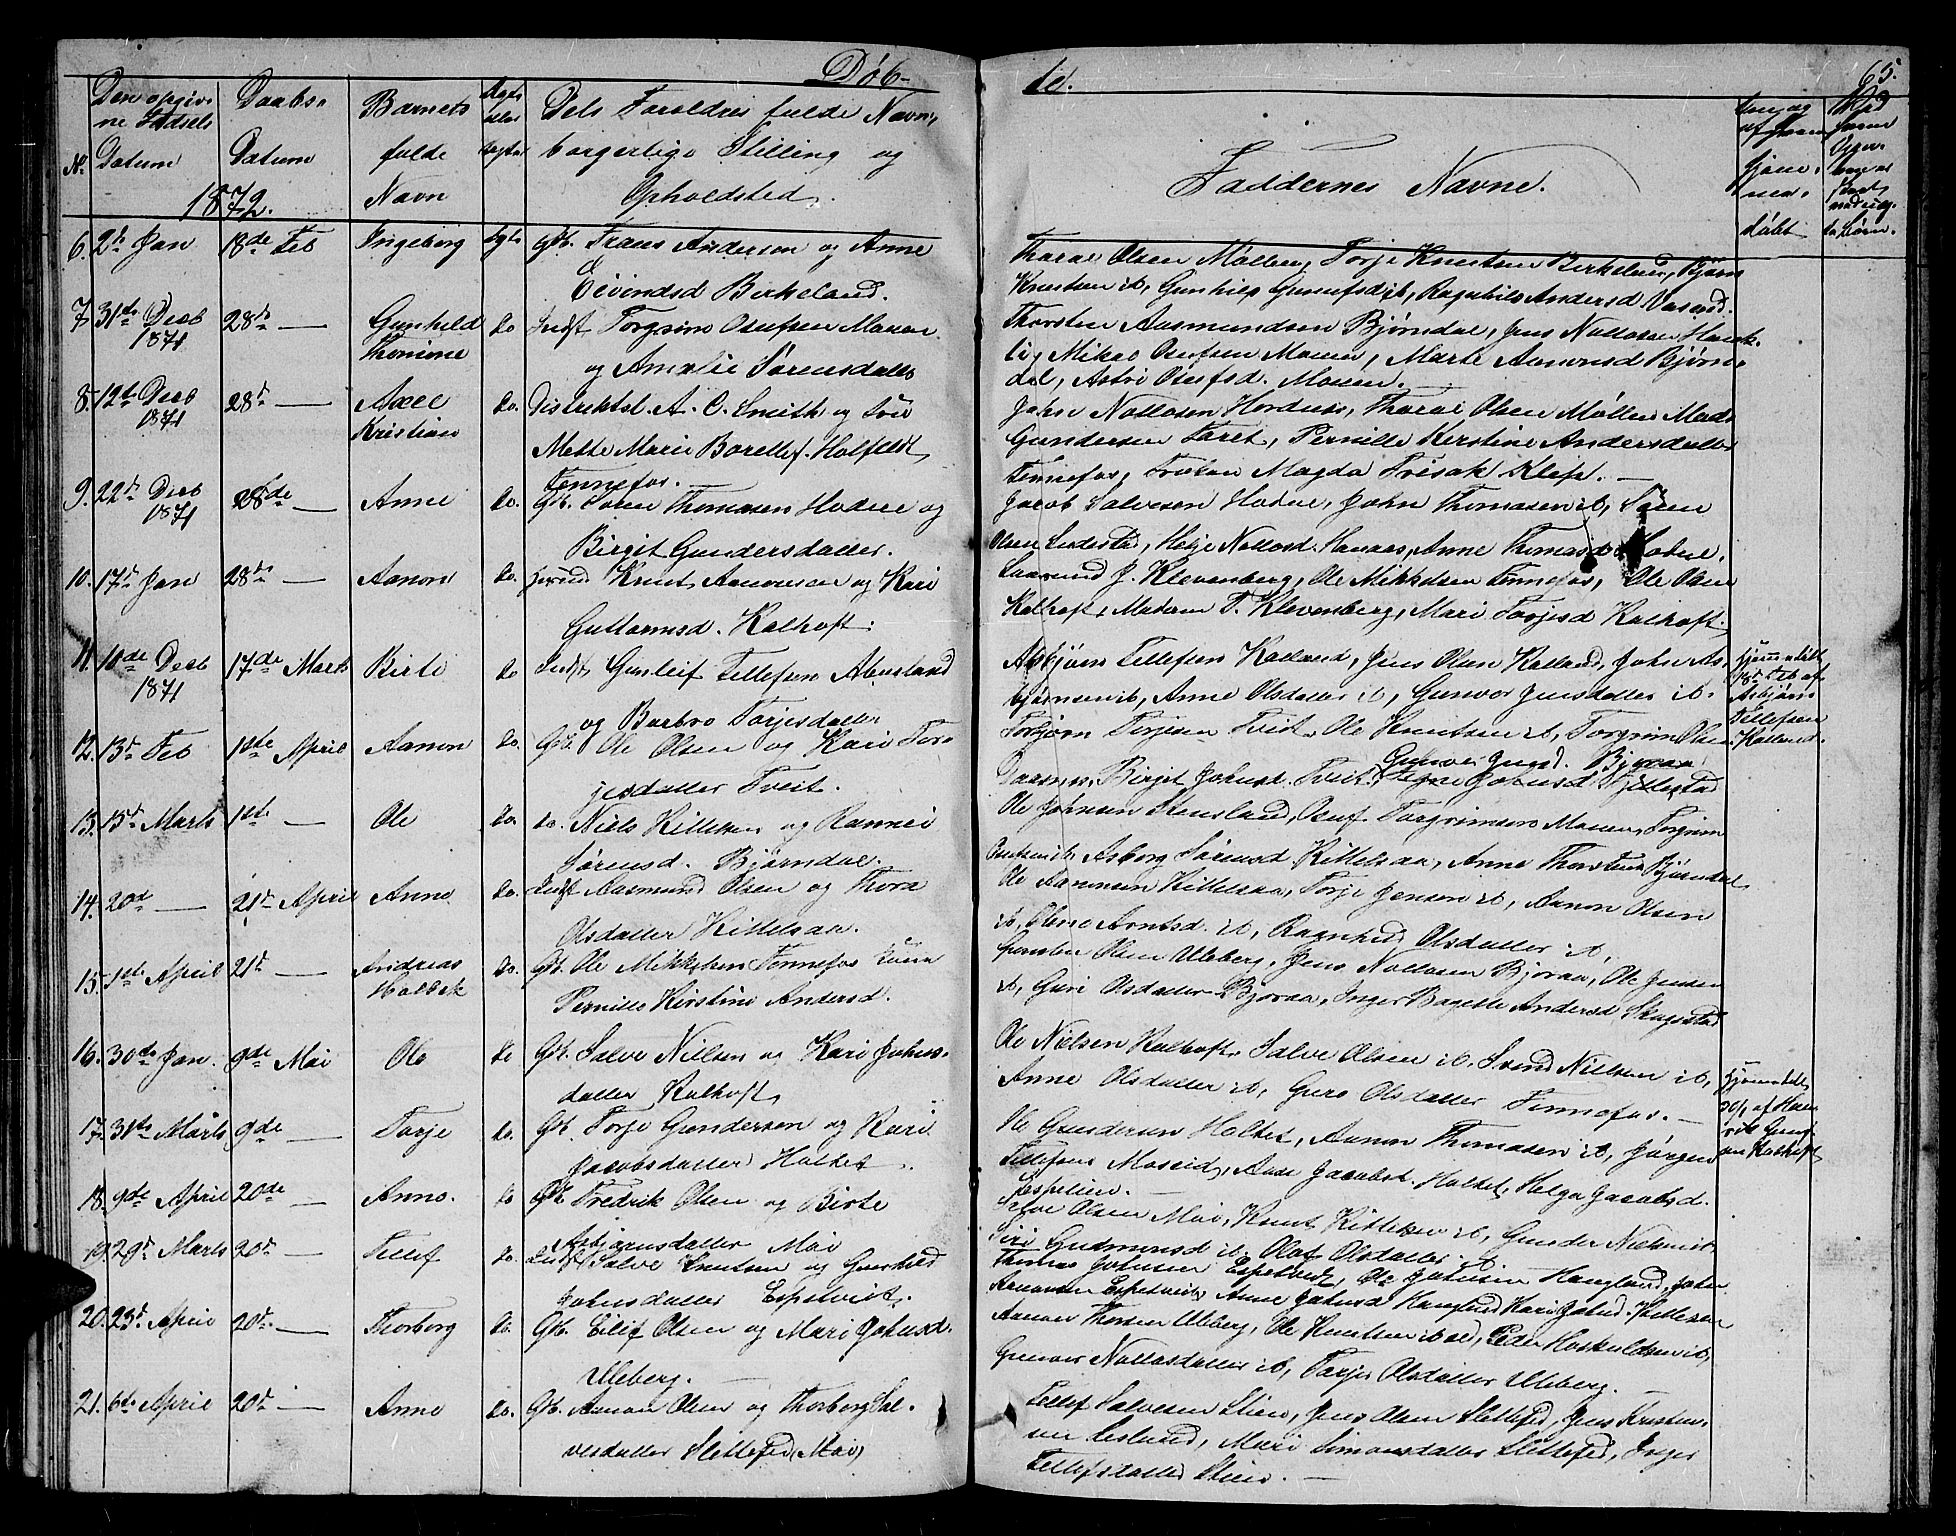 Døb-
te.
65.
No
Den opgiv-
ne Fødsels
Datum
Daabs-
Datum
1872.
Barnets
fulde
Navn
Ægte
eller
uægte
Dets Foreldres fulde Navn,
borgerlige Stilling og
Opholdsted.
Faddernes Navne.
hjem-
me-
døbt
6. 2de Jan 18de Feb Ingeborg Ægte Gb. Frans Anderson og Anne
Eivindsd Birkeland.
Tharal Olsen Møllen, Torje Knutsen Birkeland, Bjørn
Knutsen ib, Gunhild ib, Ragnhild Andersd
7. 31te Decb 1871 28de — Gunhild Thomine do Indst Torgrim Osufsen Monen
og Amalie Sørensdatter
Thorsten Aasmundsen Bjørndal, Jens Nollosen
Mikal Osufsen Monen, Marte Aanonsd Bjørn-
dal, Astri Osufsd. Monen. —
8. 12te Decb 1871 28de — Axel Kristian do. Distriktsl. A. C. Smith og
Mette Marie Borettef. Holfeldt
Fennefos.
John Nollosen Hordnes, Tharal Olsen Møllen, Mads
Gundersen Faret, Pernille Kerstine Andersdatter
Fennefos, Frøken Magda
9. 22de Decb 1871 28de — Anne do. Gb. Søren Thomasen Hodne og
Birgit Gundersdatter.
Jacob Salvesen Hodne, John Thomasen ib, Søren
Olsen Helje Nollosd. Hanaas, Anne Thomasd Hodne.
10. 17de Jan 28de — Aanon do. Knut Aanonsen og Kari
Guttormsd. Kalhoft.
J. Klevenberg, Ole Mikkelsen Fennefos, Ole Olsen
Kalhoft, Madam T. Klevenberg, Mari Torjesd Kalhoft.
11. 10de Decb 1871 17de Marts Birte do Indst Gunleif Tellefsen Abusland
og Barbro Torjesdatter
Asbjørn Tellefsen Kalland, Jens Olsen Kalland, John As-
bjørnsen ib, Anne Olsdatter ib, Gunvor Jensdatter ib.
hjemmedøbt
18de Feb af
Asbjørn
Tellefsen
Kalland.
12. 13de Feb 1ste April Aanon do. Gb. Ole Olsen og Kari Tor-
jesdatter Tveit.
Torbjørn Torjesen Tveit, Ole Knutsen ib, Torgrim Olsen
Gunvor Jensd. Bjoraa
Daasnes, Birgit Johnsd. Tveit, Signe Johnsd Hjillestad
13. 15de Marts 1ste — Ole do. do. Niels Kittelsen og Rannei
Sørensd. Bjørndal.
Ole Johnsen Stensland, Osuf Torgrimsen Monen, Torgrim
Osufsen ib, Asborg Sørensd Kittelsaa, Anne Thorstensd Bjørndal
14. 20de — 21de April Anne do. Indst Aasmund Olsen og Thora
Olsdatter Kittelsaa.
Ole Aanonsen Kittelsaa, Torje Jensen ib, Aanon Olsen
ib, Olene Arntsd. ib, Ragnhild Olsdatter ib,
15. 1ste April 21de — Andreas Holbek do. Gb. Ole Mikkelsen Fennefos
Pernille Kirstine Andersd.
Gunsten Olsen Uleberg, Jens Nollosen Bjoraa, Ole Jensen
ib, Guri Olsdatter Bjoraa, Inger Bagette Andersd Skagestad
16. 30de Jan. 9de Mai Ole do Gb. Salve Nielsen og Kari Johns-
datter Kalhoft
Ole Nielsen Kalhoft, Salve Olsen ib, Svend Nielsen ib,
Anne Olsdatter ib, Guro Olsdatter Fennefos. —
hjemmedøbt
30/1 af
Kalhoft
17. 31te Marts 9de — Torje do. Gb. Torje Gundersen og Kari
Jacobsdatter Holtet.
Ole Gundersen Holtet, Aanon Thomasen ib, Jørgen
Tellefsen Moseid, Aase Jacobsd. Holtet, Helga Jacobsd.
Espelien. —
18. 9de April 20de — Anne. do Gb. Fredrik Olsen og Birte
Asbjørnsdatter Moi
Salve Olsen Moi, Knut Kittelsen ib, Gunder Nielsen ib,
Siri Gudmunsd ib, Olaf Olsdatter
19. 29de Marts 20de — Tellef do. Indst Salve Knutsen og Gunhild
Johnsdatter Espetveit.
Thomas Johnsen Espetveit, Ole Johnsen Haugland, John
Aanonsen Espetveit, Anne Johnsd Haugland, Kari Johnsd.
20. 23de April 20de — Thorborg do. Gb. Eilif Olsen og Mari Johnsd.
Uleberg. —
Aanon Thorsen Uleberg, Ole Knutsen ib, Peder Hoskuldsen ib,
Gunvor Nollosdatter ib, Torjer Olsdatter Uleberg. —
21. 6te April 20de — Anne do. Gb. Aanon Olsen og Thorborg Sal-
vesdatter Slettefed (Moi)
Tellef Salvesen Stien, Jens Olsen Slettefed, Jens Kristen-
sen Mari Simonsdatter Slettefed, Inger
Tellefsdatter Stien. —